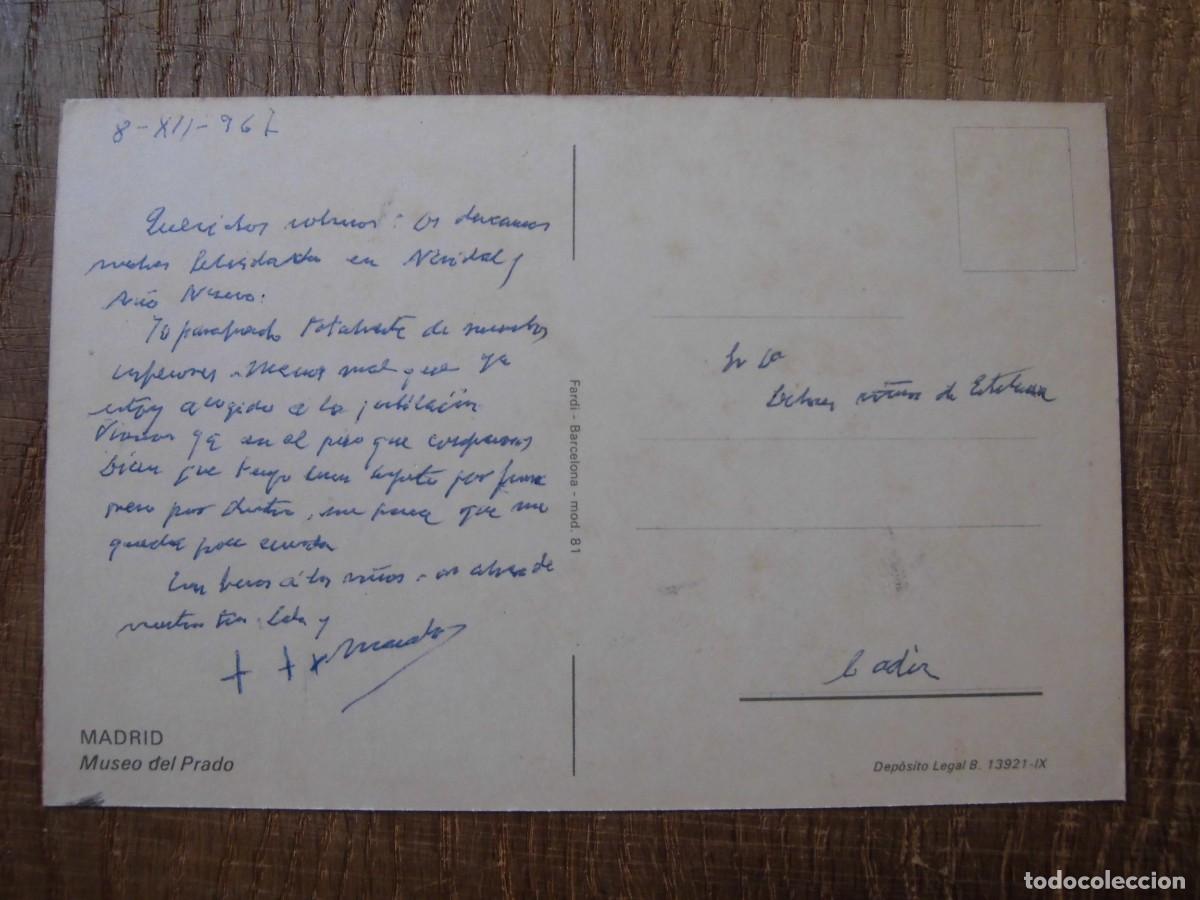 8-XII-967
Queridos sobrinos: os deseamos
muchas felicidades en Navidad y
Año Nuevo.
Yo totalmente de nuestros
Menos mal que ya
estoy acogido a la jubilación
Vivimos ya en el piso que compramos
Dicen que tengo buen aspecto por fuera
pero por dentro, me parece que me
queda poca cuerda
Con besos a los niños os abraza
vuestra tía y
MADRID
Museo del Prado
Fardi - Barcelona - mod. 81
Dolores de Esteban
Cadiz
Depósito Legal B. 13921-IX
todocoleccion